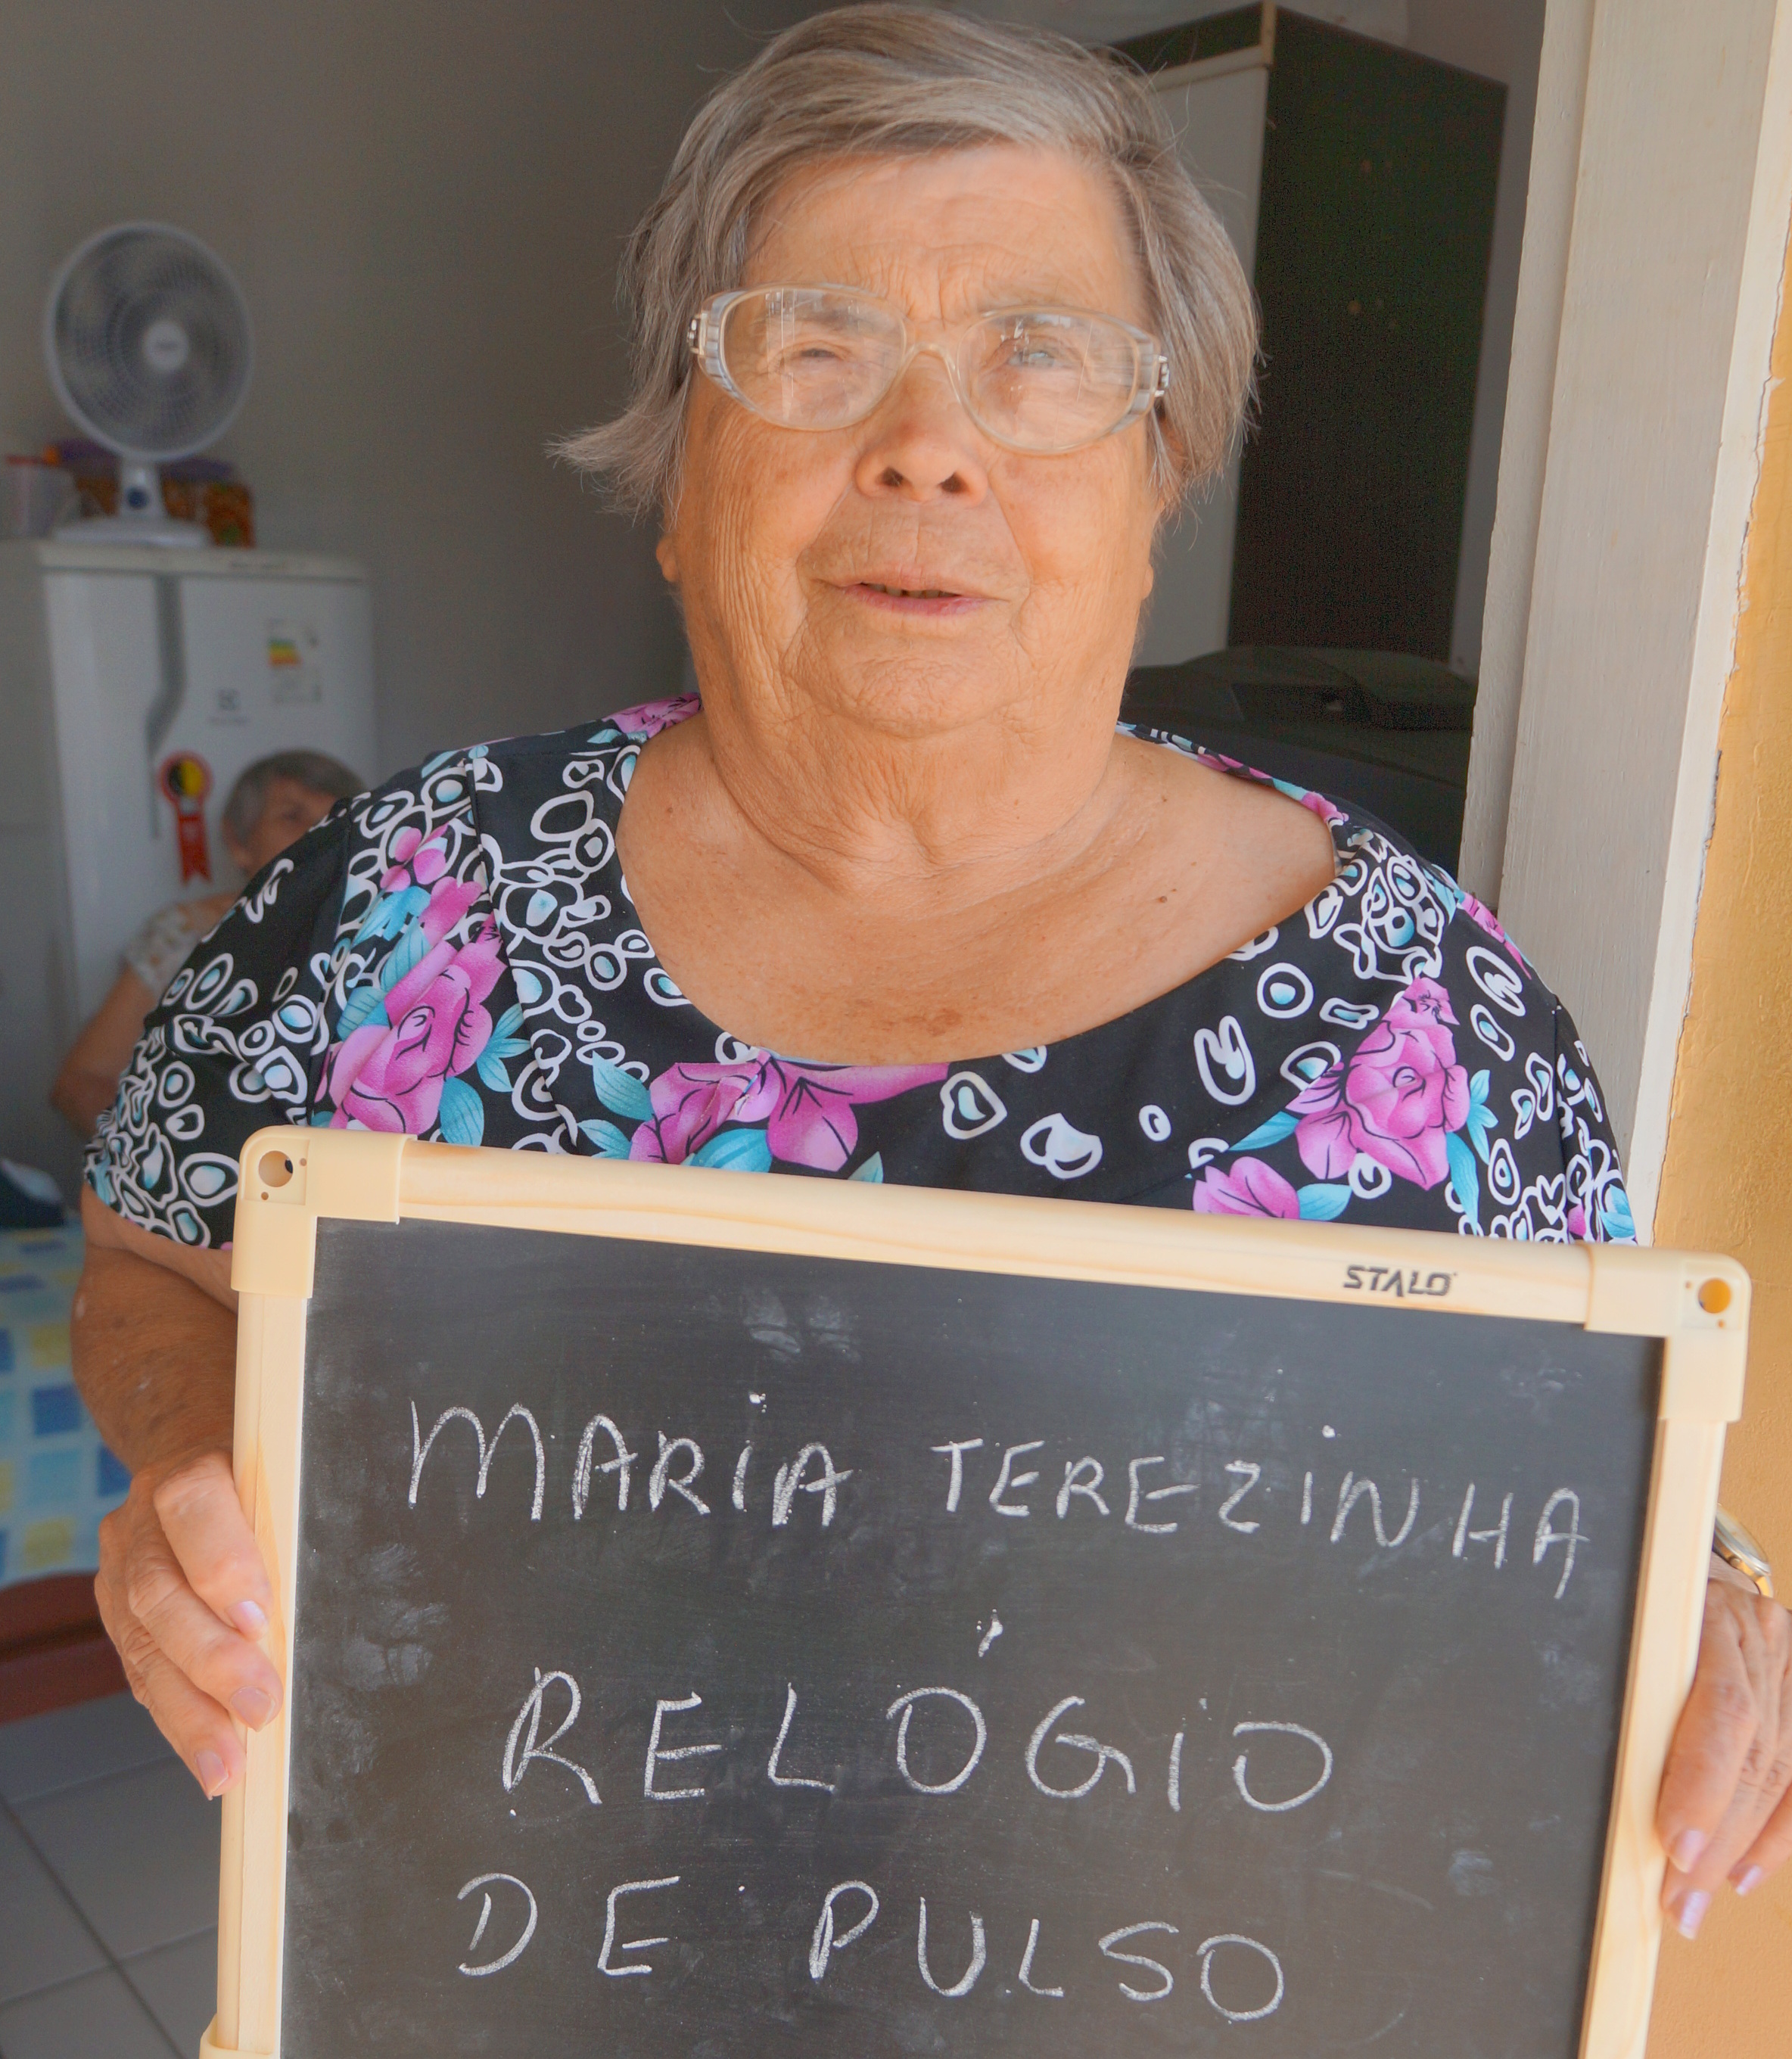 STALO
MARIA TEREZINHA
RELÓGIO
DE PULSO